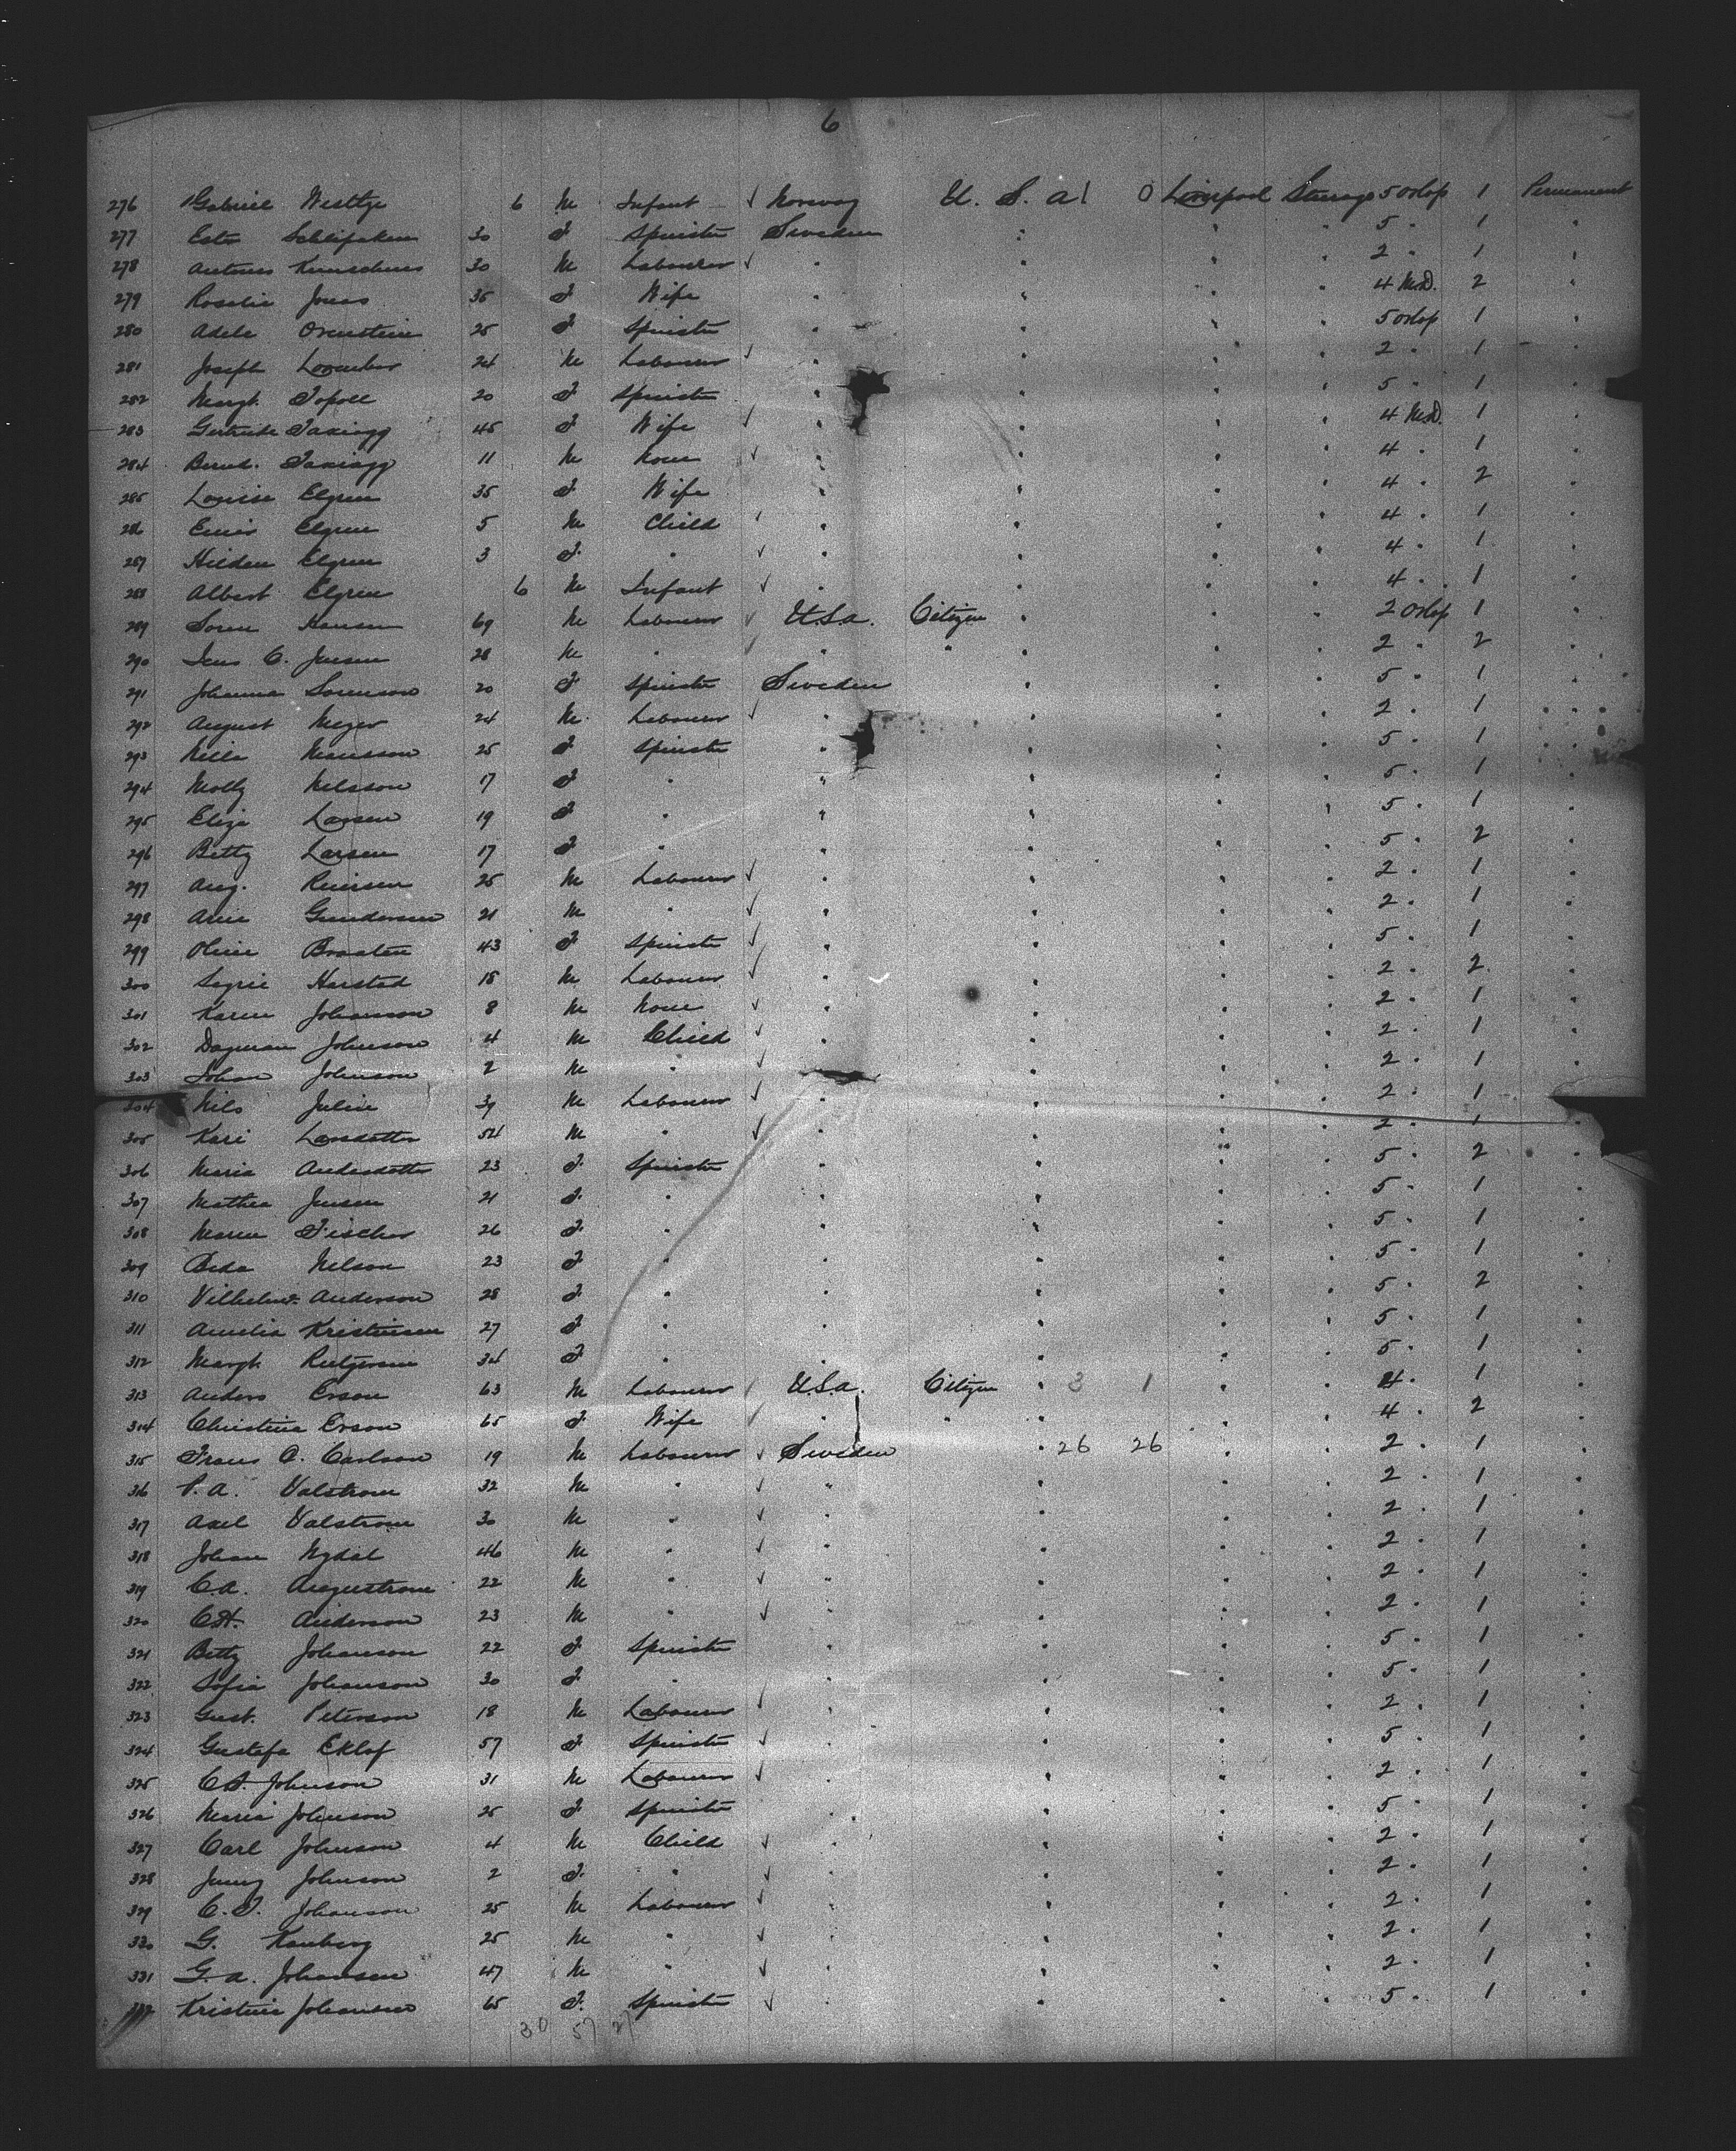 6
276 Gabriel Westlye 6 M Infant ✓ Norway U. S. A 1 0 Liverpool Steerage 5 Orlop 1 Permanent
277 Ester 30 F Spinster Sweden " " " 5 " 1 "
278 30 M Labourer ✓ " " " " 2 " 1 "
279 Rosalie Jonas 35 F Wife " " " " 4 M.D. 2 "
280 Adele Orenstein 25 F Spinster " " " " 5 Orlop 1 "
281 Joseph 24 M Labourer ✓ " " " " 2 " 1 "
282 Margt. Topoll 20 F Spinster " " " " 5 " 1 "
283 Gertrude 45 F Wife ✓ " " " " 4 M.D. 1 "
284 11 M None ✓ " " " " 4 " 1 "
285 Louise Elgren 35 F Wife " " " " 4 " 2 "
286 Elgren 5 M Child ✓ " " " " 4 " 1 "
287 Hilden Elgren 3 F " ✓ " " " " 4 " 1 "
288 Albert Elgren 6 M Infant ✓ " " " " 4 " 1 "
289 Soren Hansen 69 M Labourer ✓ U.S.A. Citizen " " " 2 Orlop 1 "
290 Jens C. Jensen 28 M " ✓ " " " " " 2 " 2 "
291 Johanna Sorenson 20 F Spinster Sweden " " " 5 " 1 "
292 August Meyer 24 M Labourer ✓ " " " " 2 " 1 "
293 Nilla Monsson 25 F Spinster " " " " 5 " 1 "
294 Molly Nelsson 17 F " " " " " 5 " 1 "
295 Eliza Larsen 19 F " " " " " 5 " 1 "
296 Betty Larsen 17 F " " " " " 5 " 2 "
297 Aug. 25 M Labourer ✓ " " " " 2 " 1 "
298 Arne Gundersen 21 M " ✓ " " " " 2 " 1 "
299 Oline Braaten 43 F Spinster ✓ " " " " 5 " 1 "
300 Harstad 18 M Labourer ✓ " " " " 2 " 2 "
301 Karen Johansson 8 M None ✓ " " " " 2 " 1 "
302 Dagman Johnson 4 M Child ✓ " " " " 2 " 1 "
303 Johan Johnson 2 M " ✓ " " " " 2 " 1 "
304 Nils Julin 39 M Labourer ✓ " " " " 2 " 1 "
305 Kari Larsdatter 54 M " ✓ " " " " 2 " 1 "
306 Maria Andersdotter 23 F Spinster " " " " 5 " 2 "
307 Mathea Jensen 21 F " " " " " 5 " 1 "
308 Maren Fischer 26 F " " " " " 5 " 1 "
309 Beda Nelson 23 F " " " " " 5 " 1 "
310 Vilhelm. Anderson 28 F " " " " " 5 " 2 "
311 Amelia Kristensen 27 F " " " " " 5 " 1 "
312 Margt. 34 F " " " " " 5 " 1 "
313 Anders Erson 63 M Labourer ✓ U.S.A. Citizen " 3 1 " " 4 " 1 "
314 Christina Erson 65 F Wife ✓ " " " " " 4 " 2 "
315 Frans A. Carlson 19 M Labourer ✓ Sweden " 26 26 " " 2 " 1 "
316 P. A. Valstrom 32 M " ✓ " " " " 2 " 1 "
317 Axel Valstrom 30 M " ✓ " " " " 2 " 1 "
318 Johan Nydal 46 M " ✓ " " " " 2 " 1 "
319 C. A. Augustrom 22 M " ✓ " " " " 2 " 1 "
320 C. H. Anderson 23 M " ✓ " " " " 2 " 1 "
321 Betty Johanson 22 F Spinster " " " " 5 " 1 "
322 Sofia Johanson 30 F " " " " " 5 " 1 "
323 Gust. Peterson 18 M Labourer ✓ " " " " 2 " 1 "
324 Gustafa Eklof 57 F Spinster ✓ " " " " 5 " 1 "
325 Johnson 31 M Labourer ✓ " " " " 2 " 1 "
326 Maria Johnson 25 F Spinster " " " " 5 " 1 "
327 Carl Johnson 4 M Child ✓ " " " " 2 " 1 "
328 Jenny Johnson 2 F " ✓ " " " " 2 " 1 "
329 Johanson 25 M Labourer ✓ " " " " 2 " 1 "
330 G. 25 M " ✓ " " " " 2 " 1 "
331 G. A. Johanson 47 M " ✓ " " " " 2 " 1 "
332 Kristina Johanson 65 F Spinster ✓ " " " " 5 " 1 "
30 57